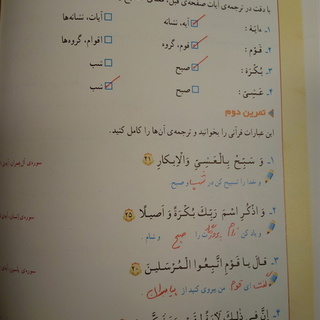 با دقت در ترجمه‌ی آیات صفحه‌ی قبل،
۱ـ ءایَة : آیه، نشانه آیات، نشانه‌ها
۲ـ قَوْم : قوم، گروه اقوام، گروه‌ها
۳ـ بُكْرَة : صبح شب
۴ـ عَشِيّ : صبح شب
تمرین دوم
این عبارات قرآنی را بخوانید و ترجمه‌ی آن‌ها را کامل کنید.
۱ـ وَ سَبِّح بِالْعَشِيِّ وَالْاِبكارِ ۴۱ سوره‌ی آل عمران،
و خدا را تسبیح کن در شب و صبح
۲ـ وَ اذْكُرِ اسْمَ رَبِّكَ بُكْرَةً وَ اَصيلًا ۲۵
و یاد کن نام پروردگارت را صبح و شام .
۳ـ قالَ يا قَوْمِ اتَّبِعُوا الْمُرْسَلينَ ۲۰ سوره‌ی یس،
گفت ای قوم من پیروی کنید از پیامبران .
۴ـ اِنَّ في ذٰلِكَ لَآيَةً